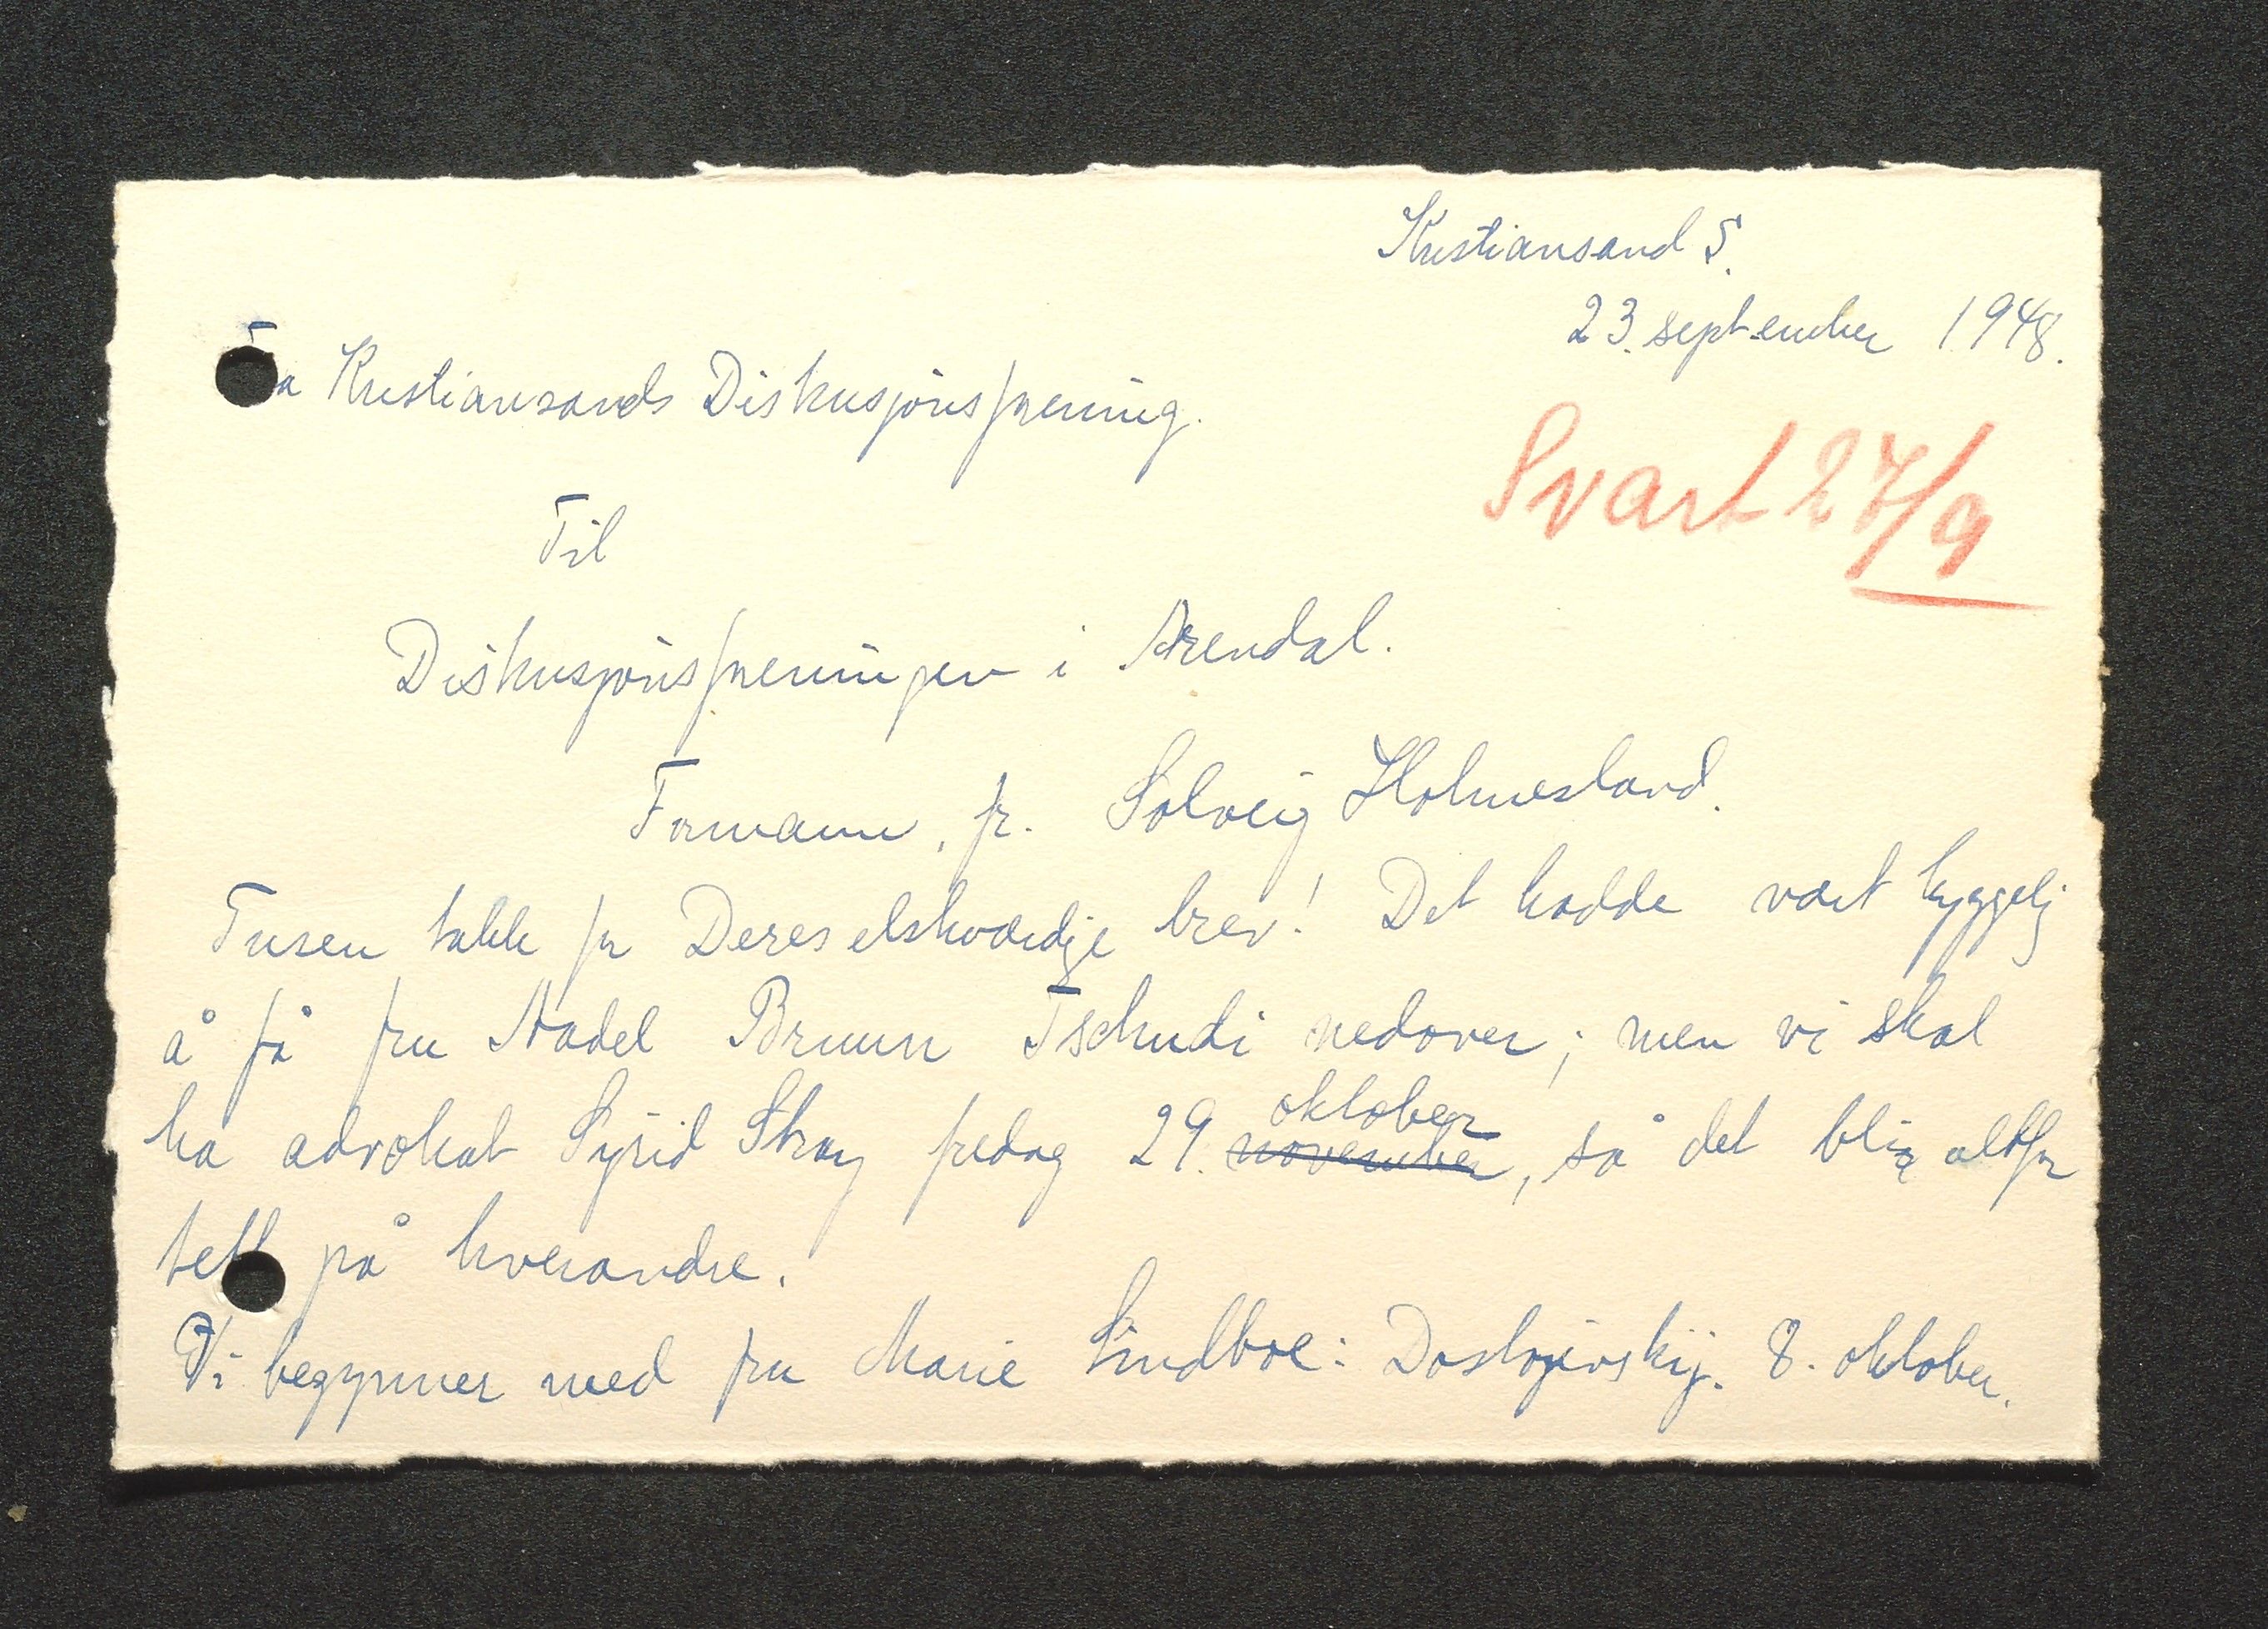 Kristiansand S.
23. september 1948.
Fra Kristiansands Diskusjonsforening.
Svart 27/9
Til
Diskusjonsforeningen i Arendal.
Formann, fr. Solveig Holmesland.
Tusen takk for Deres elskverdige brev! Det hadde vært hyggelig
å få fru Aadel Bruun Tschudi nedover; men vi skal
oktober
ha advokat Sigrid Stray fredag 29. november, så det blir altfor
tett på hverandre.
Vi begynner med fru Marie Lindboe: Dostojevskij. 8. oktober.